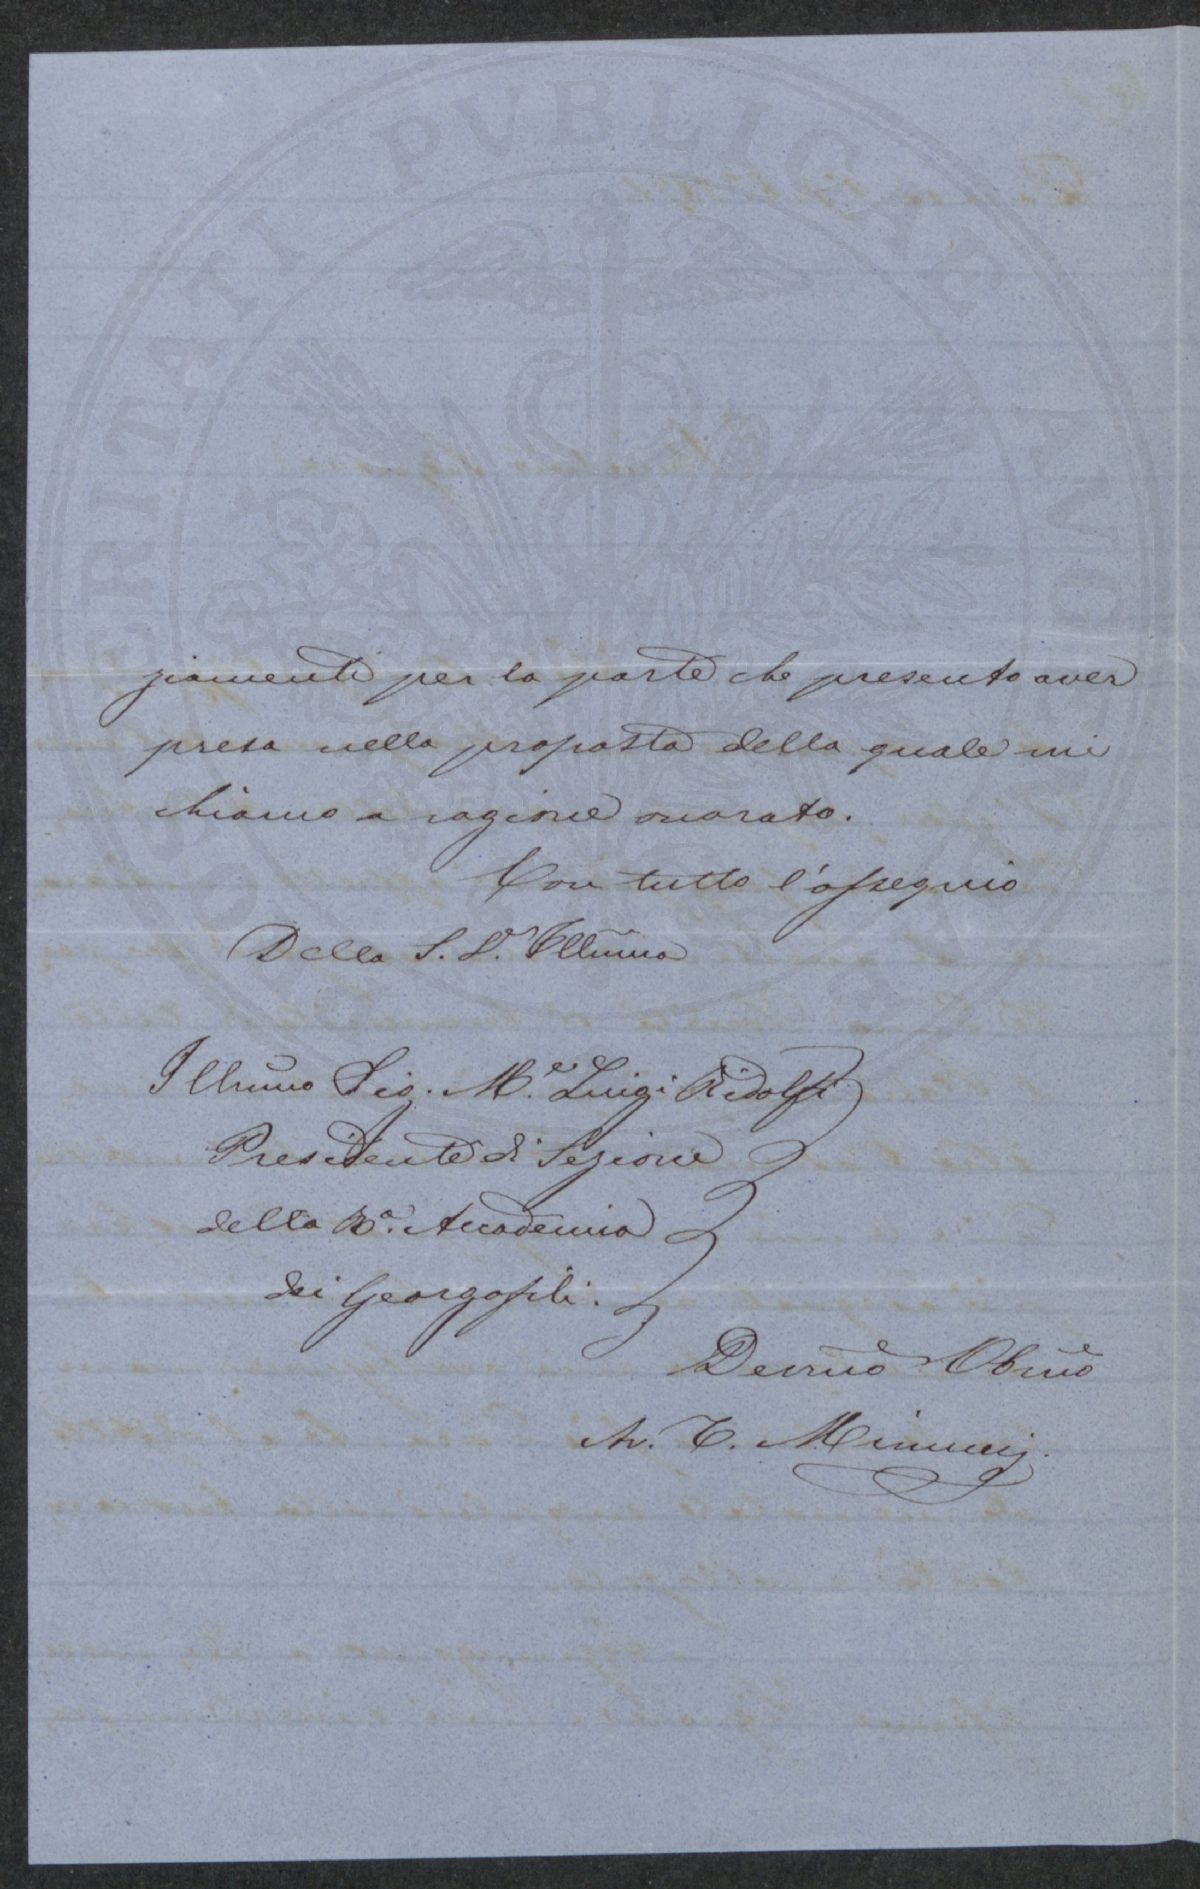 PROSPERITATI PUBLICAE AVGENDAE
ziamenti per la parte che presento aver
presa nella proposta della quale mi
chiamo a ragione onorato.
Con tutto l'ossequio
Della S. S.ª Illũma
Illũmo Sig. M.e Luigi Ridolfi
Presidente di Sezione
della R.ª Accademia
dei Georgofili.
Devmõ Obmõ